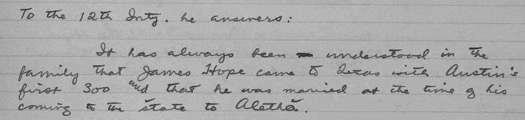 To the 12th Intg. he answers:
It has always been understood in the
family that James Hope came to Texas with Austin's
first 300 and that he was married at the time of his
coming to the state to Aletha.